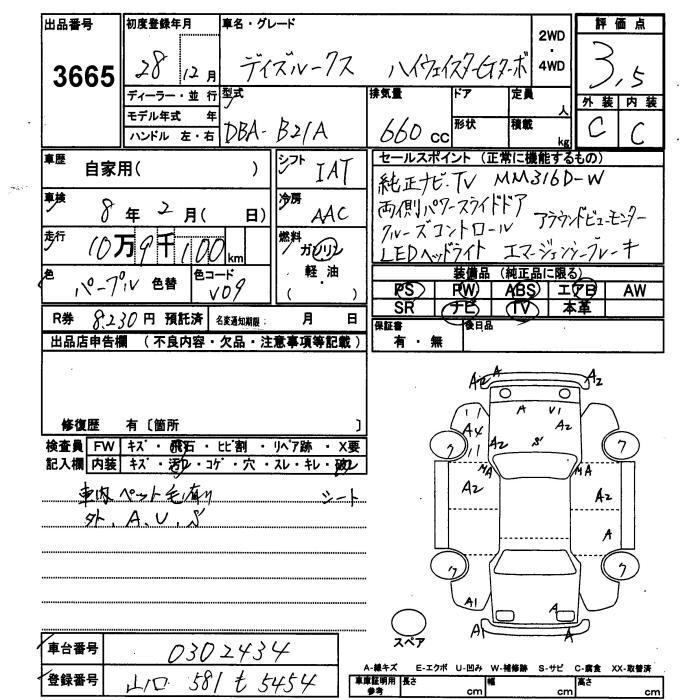 出品番号 初度登録年月 車名・グレード 評価点
3665 28 12月 デイズルークス ハイウェイスターGターボ 2WD・4WD 3,5
ディーラー・並行 型式 排気量 ドア 定員 人 外装 内装
モデル年式 年 DBA- B21A 660 CC 形状 積載 kg C C
ハンドル 左・右
車歴 自家用( ) シフト IAT セールスポイント (正常に機能するもの)
車検 8年 2月( 日) 冷房 AAC 純正ナビ・TV MM316D-W
両側パワースライドドア
走行 10万9千100km 燃料 ガソリン 軽・油 ( ) クルーズコントロール アラウンドビューモニター
LEDヘッドライト エマージェンシーブレーキ
色 パープル 色替 色コード V09 装備品 (純正品に限る)
PS PW ABS エアB AW
SR ナビ TV 本革
R券 8,230円 預託済 名変通知期限: 月 日 保証書 有・無 後日品
出品店申告欄 (不良内容・欠品・注意事項等記載)
修復歴 有 〔箇所 〕
検査員 FW キズ・飛石・ヒビ割・リペア跡・X要
記入欄 内装 キズ・汚れ・コゲ・穴・スレ・キレ・破れ
車内 ペット毛有り シート
外、A、U、S
A2 A A2
A U1
A4 A2
A2 S
ワ MA MA ワ
A2 A2
A
ワ ワ
A1 A
A1 A
スペア
車台番号 0302434
登録番号 山口 581 も 5454
A-線キズ E-エクボ U-凹み W-補修跡 S-サビ C-腐食 XX-取替済
車庫証明用参考 長さ cm 幅 cm 高さ cm